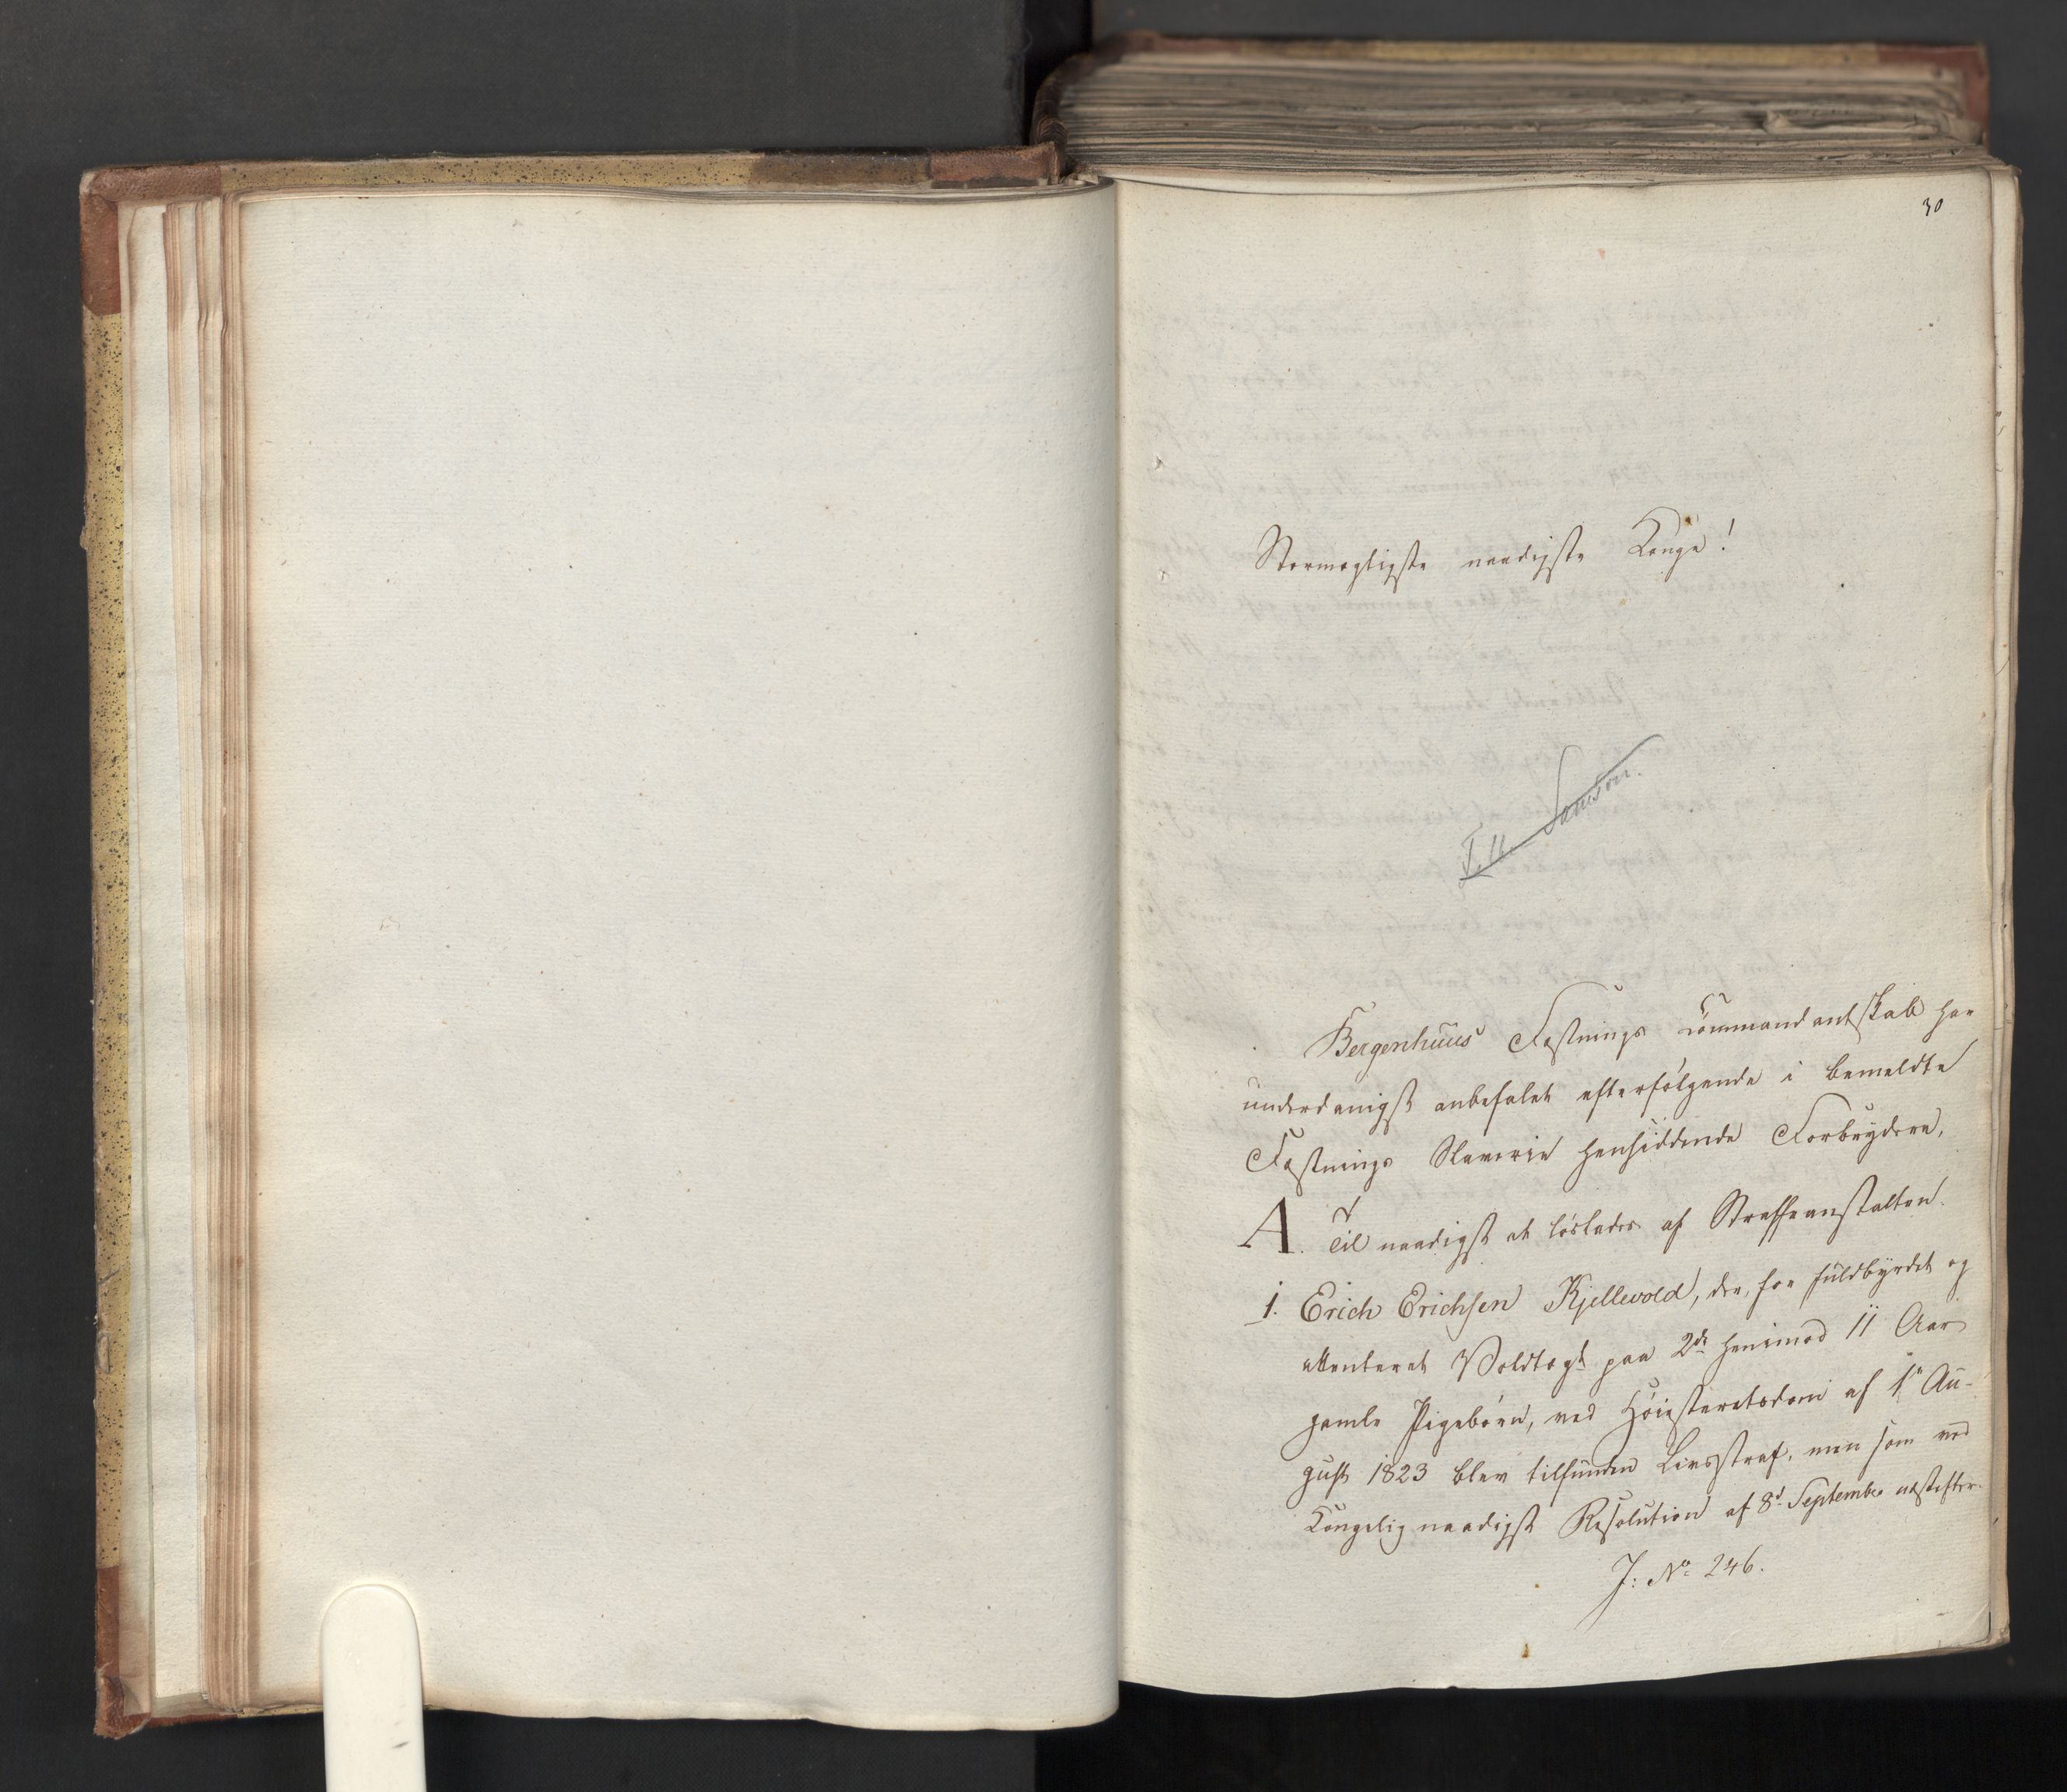 30
Stormægtigste naadigste Konge!
Bergenhuus Fæstnings Commandantskab har
underdanigst anbefalet efterfølgende i bemeldte
Fæstnings Slaverie hensiddende Forbrydere,
A. Til naadigst at løslades af Straffeanstalten.
1. Erich Erichsen Kjellevold, der, for fuldbyrdet og
attenteret Voldtægt paa 2de henimod 11 Aar
gamle Pigebørn, ved Høiesteretsdom af 1te Au-
gust 1823 blev tilfunden Livsstraf, men som ved
Kongelig naadigst Resolution af 8d September næstefter-
J: No 246.